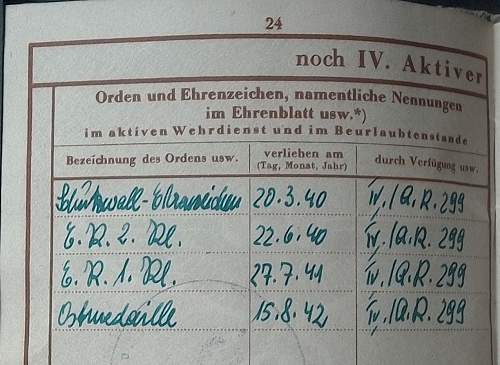 24
noch IV. Aktiver
Orden und Ehrenzeichen, namentliche Nennungen
im Ehrenblatt usw.*)
im aktiven Wehrdienst und im Beurlaubtenstande
Bezeichnung des Ordens usw. verliehen am (Tag, Monat, Jahr) durch Verfügung usw.
Schutzwall-Ehrenzeichen 20.3.40 IV./A.R. 299
E. K. 2. Kl. 22.6.40 IV./A.R. 299
E. K. 1. Kl. 27.7.41 IV./A.R. 299
Ostmedaille 15.8.42 IV./A.R. 299